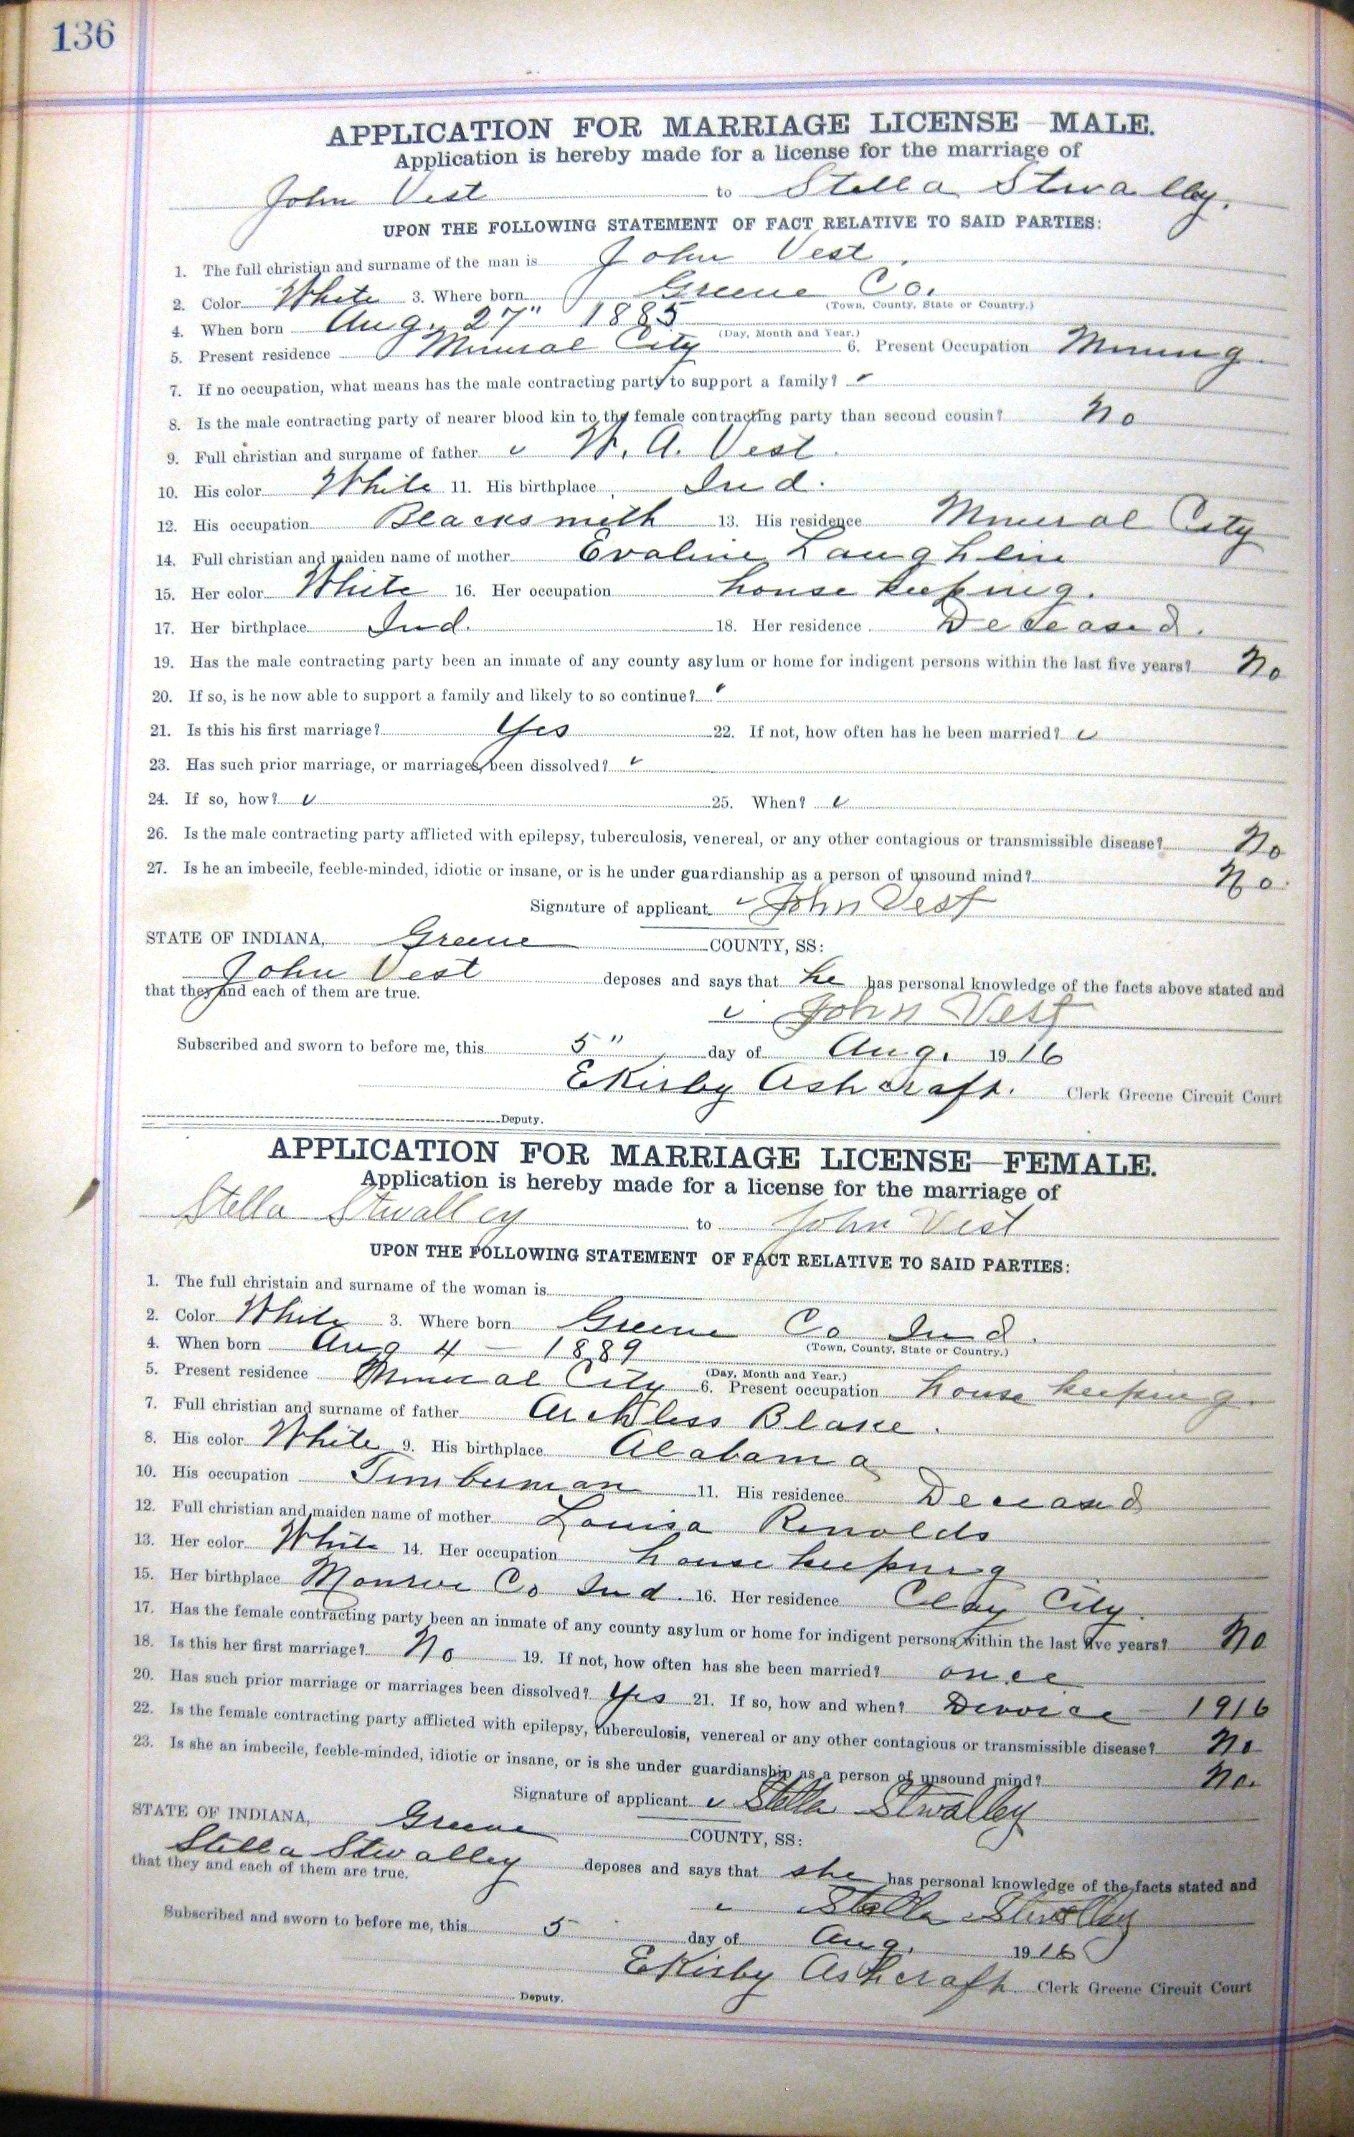 136
APPLICATION FOR MARRIAGE LICENSE—MALE.
Application is hereby made for a license for the marriage of
John Vest to Stella Stwalley.
UPON THE FOLLOWING STATEMENT OF FACT RELATIVE TO SAID PARTIES:
1. The full christian and surname of the man is John Vest.
2. Color White 3. Where born Greene Co.
(Town, County, State or Country.)
4. When born Aug. 27" 1885
(Day, Month and Year.)
5. Present residence Mineral City 6. Present Occupation Mining.
7. If no occupation, what means has the male contracting party to support a family?
8. Is the male contracting party of nearer blood kin to the female contracting party than second cousin? No
9. Full christian and surname of father W. A. Vest.
10. His color White 11. His birthplace Ind.
12. His occupation Blacksmith 13. His residence Mineral City
14. Full christian and maiden name of mother Evaline Laughlin
15. Her color White 16. Her occupation house keeping.
17. Her birthplace Ind. 18. Her residence Deceased.
19. Has the male contracting party been an inmate of any county asylum or home for indigent persons within the last five years? No
20. If so, is he now able to support a family and likely to so continue?
21. Is this his first marriage? Yes 22. If not, how often has he been married?
23. Has such prior marriage, or marriages, been dissolved?
24. If so, how? 25. When?
26. Is the male contracting party afflicted with epilepsy, tuberculosis, venereal, or any other contagious or transmissible disease? No
27. Is he an imbecile, feeble-minded, idiotic or insane, or is he under guardianship as a person of unsound mind? No.
Signature of applicant John Vest
STATE OF INDIANA, Greene COUNTY, SS:
John Vest deposes and says that he has personal knowledge of the facts above stated and
that they and each of them are true.
John Vest
Subscribed and sworn to before me, this 5" day of Aug. 1916
E Kirby Ashcraft. Clerk Greene Circuit Court
Deputy.
APPLICATION FOR MARRIAGE LICENSE—FEMALE.
Application is hereby made for a license for the marriage of
Stella Stwalley to John Vest
UPON THE FOLLOWING STATEMENT OF FACT RELATIVE TO SAID PARTIES:
1. The full christain and surname of the woman is
2. Color White 3. Where born Greene Co Ind.
(Town, County, State or Country.)
4. When born Aug 4 — 1889
(Day, Month and Year.)
5. Present residence Mineral City 6. Present occupation house keeping.
7. Full christian and surname of father Blake.
8. His color White 9. His birthplace Alabama
10. His occupation Timberman 11. His residence Deceased
12. Full christian and maiden name of mother Louisa Renolds
13. Her color White 14. Her occupation house keeping
15. Her birthplace Monroe Co Ind. 16. Her residence Clay City.
17. Has the female contracting party been an inmate of any county asylum or home for indigent persons within the last five years? No
18. Is this her first marriage? No 19. If not, how often has she been married? once
20. Has such prior marriage or marriages been dissolved? Yes 21. If so, how and when? Divorce — 1916
22. Is the female contracting party afflicted with epilepsy, tuberculosis, venereal or any other contagious or transmissible disease? No
23. Is she an imbecile, feeble-minded, idiotic or insane, or is she under guardianship as a person of unsound mind? No.
Signature of applicant Stella Stwalley
STATE OF INDIANA, Greene COUNTY, SS:
Stella Stwalley deposes and says that she has personal knowledge of the facts stated and
that they and each of them are true.
Stella Stwalley
Subscribed and sworn to before me, this 5 day of Aug. 1916
E Kirby Ashcraft Clerk Greene Circuit Court
Deputy.